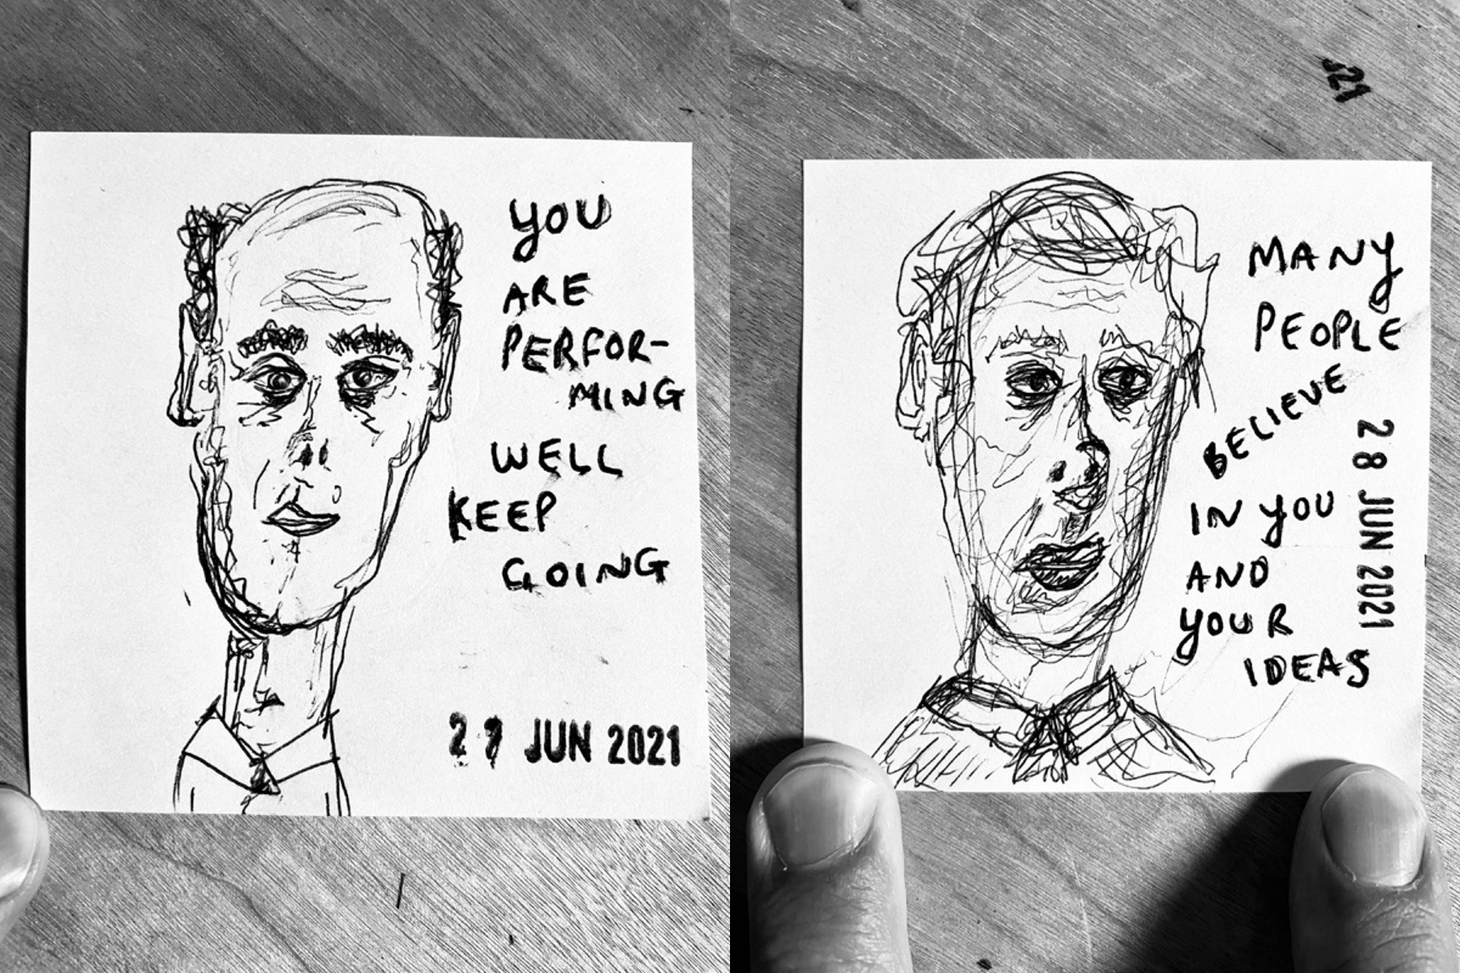 YOU
ARE
PERFOR-
MING
WELL
KEEP
GOING
27 JUN 2021
MANY
PEOPLE
BELIEVE
IN YOU
AND
YOUR
IDEAS
28 JUN 2021